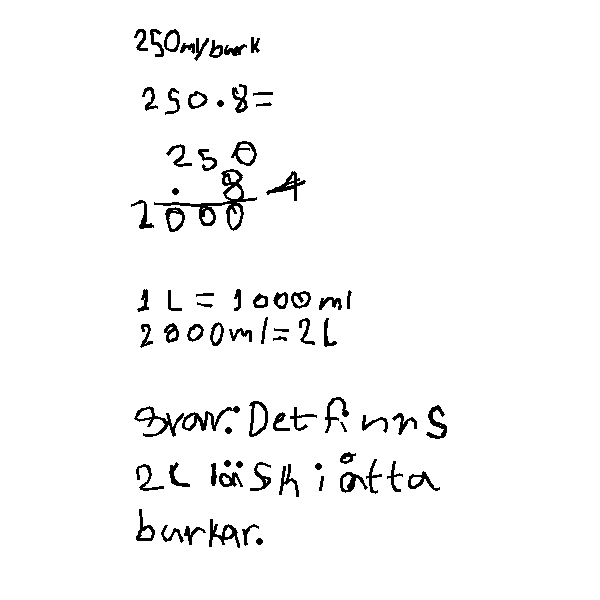 250ml/burk
250.8=
250
. 8 4
2000
1 L = 1000 ml
2000ml=2L
Svar: Det finns
2L läsk i åtta
burkar.